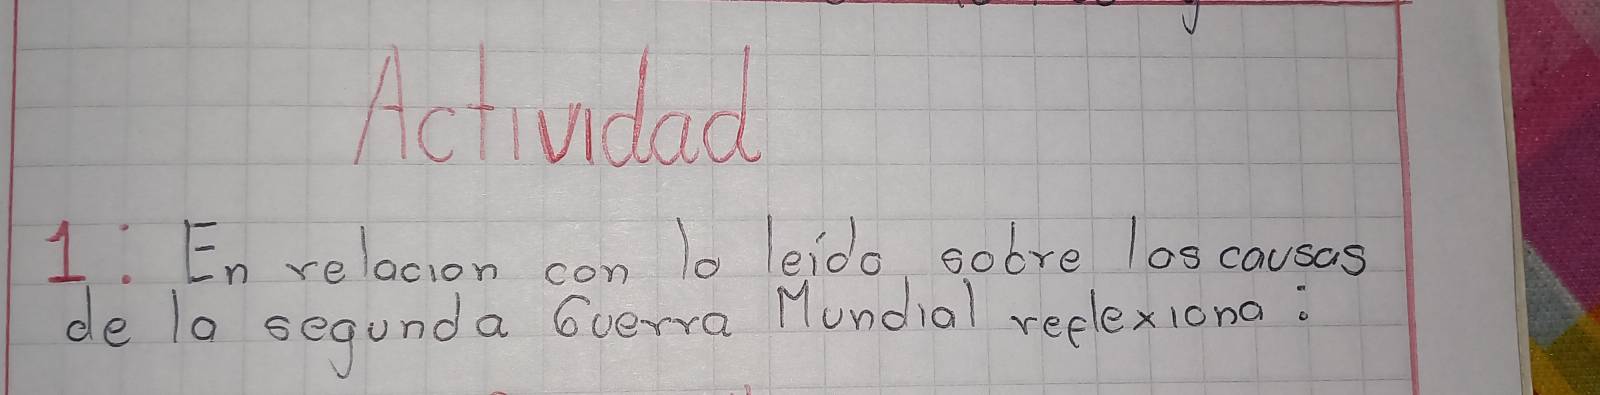 Actividad
1: En relacion con lo leído sobre las causas
de la segunda Guerra Mundial reflexiona: